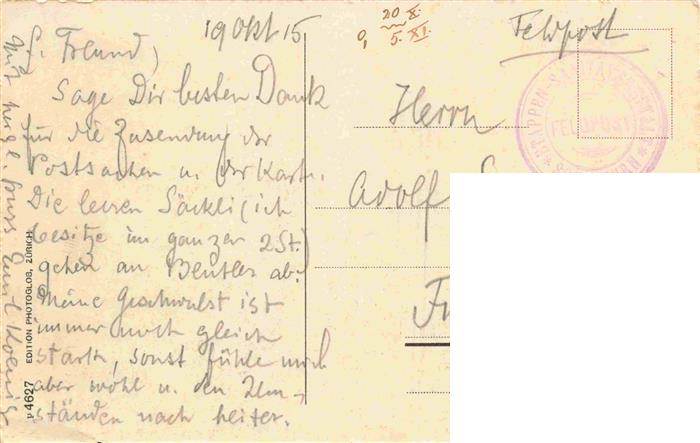 19 Okt 15
L. Freund,
Sage Dir besten Dank
für die Zusendung der
Postsachen u. der Karte.
Die leeren Säckli (ich
besitze im ganzen 2 St.)
gehen an Beutler ab.
Meine Geschwulst ist
immer noch gleich
stark, sonst fühle mich
aber wohl u. den Um-
ständen nach heiter.
Mit herzl. Gruss Emil
P 4627 EDITION PHOTOGLOB, ZÜRICH
20 X.
5. XI.
Feldpost
FELDPOST
Herrn
Adolf